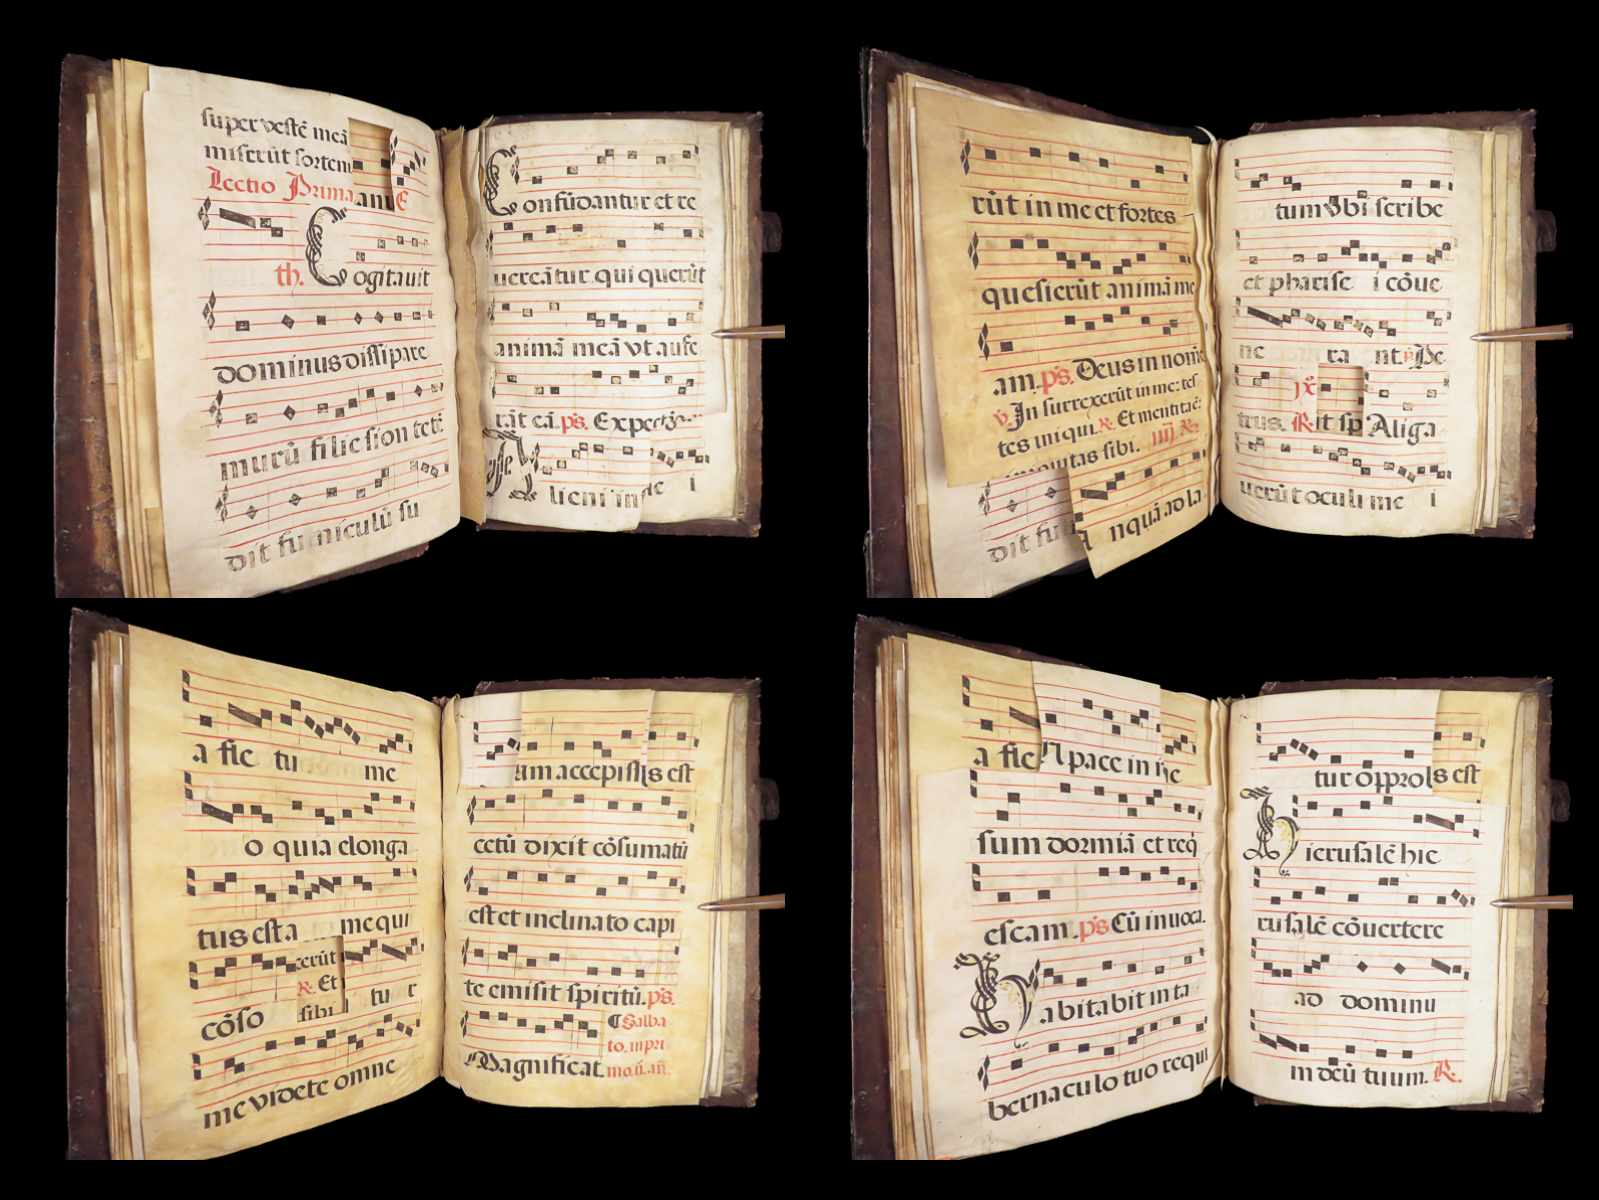 super vestē meā
miserūt sortem
Lectio Prima
am E
th. Cogitauit
dominus dissipare
murū filie sion tetē
dit funiculū su
Confūdantur et re
uereātur qui querūt
animā meā vt aufe
rāt eā. ps. Expecta
Alieni in e i
rūt in me et fortes
quesierūt animā me
am. ps. Deus in nomīe
v. In surrexerūt in me: tes
tes iniqui. R. Et mentita ē:
iniquitas sibi. iiij. R.
A nquā ad la
dit fu
tum vbi scribe
et pharise i cōue
ne ra nt. p. Pe
ix.
trus. R. it sp Aliga
uerūt oculi me i
a fie tu me
o quia elonga
tus est a me qui
xerūt
R. Et
cōso sibi tu r
me videte omne
am accepiss s est
cetū dixit cōsumatū
est et inclinato capi
te emisit spiritū. ps.
Magnificat.
¶ Salba
to. in pri
mo. ii. añ.
a fie N pace in ne
sum dormiā et req
escam. ps Cū inuoca.
Habitabit in ta
bernaculo tuo requi
tur opprob s est
Hierusalē hie
rusalē cōuertere
ad dominu
m deū tuum. R.